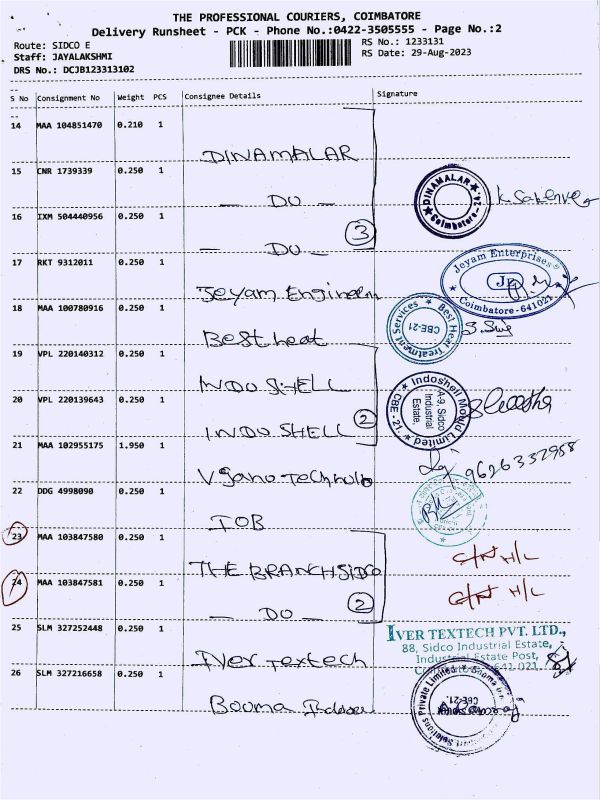 THE PROFESSIONAL COURIERS, COIMBATORE
Delivery Runsheet - PCK - Phone No.:0422-3505555 - Page No.:2
Route: SIDCO E
RS No.: 1233131
Staff: JAYALAKSHMI
RS Date: 29-Aug-2023
DRS No.: DCJB123313102
S No Consignment No Weight PCS Consignee Details Signature
14 MAA 104851470 0.210 1
DINAMALAR
15 CNR 1739339 0.250 1
— DO —
DINAMALAR
Coimbatore
16 IXM 504440956 0.250 1
3
— DO —
17 RKT 9312011 0.250 1
Jeyam Engineen
Jeyam Enterprises
JE
Coimbatore - 641021
18 MAA 100780916 0.250 1
Best heat
Best Heat Treatment Services
CBE-21
19 VPL 220140312 0.250 1
INDO SHELL
20 VPL 220139643 0.250 1
2
INDO SHELL
Indoshell Mould Limited
A-9, Sidco
Industrial
Estate,
CBE - 21.
21 MAA 102955175 1.950 1
9626332958
22 DDG 4998090 0.250 1
IOB
23 MAA 103847580 0.250 1
THE BRANCH SIDCO
H/L
24 MAA 103847581 0.250 1
2
— DO —
H/L
25 SLM 327252448 0.250 1
Iver Textech
IVER TEXTECH PVT. LTD.,
88, Sidco Industrial Estate,
Industrial Estate Post,
641 021.
26 SLM 327216658 0.250 1
Booma
Private Limited
CBE-21.